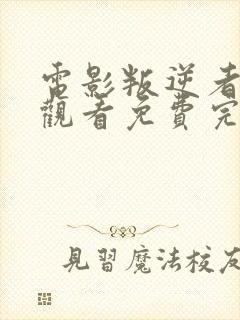 電影叛逆者
觀看免費完
見習魔法校友